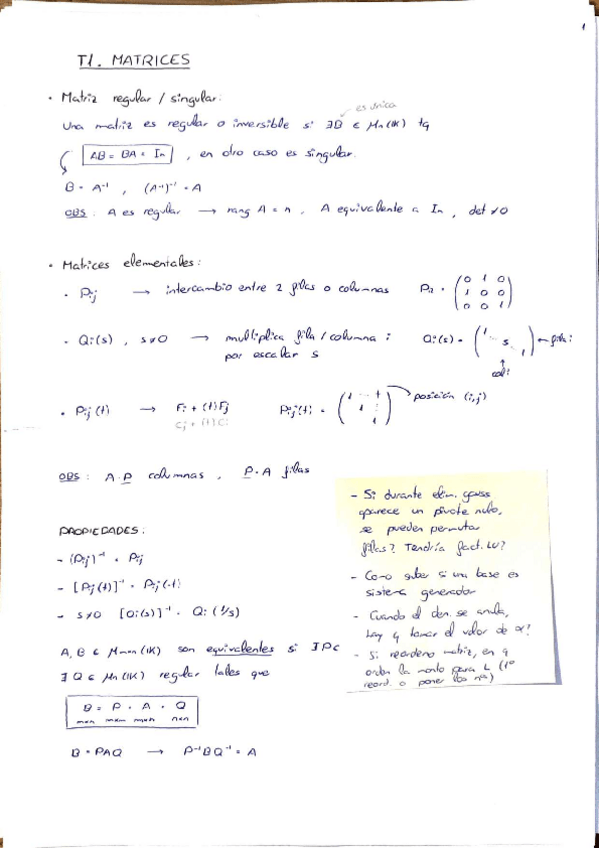 1
T1. MATRICES
· Matriz regular / singular:
es única
Una matriz es regular o inversible si ∃B ∈ Mn(IK) tq
AB = BA = In , en otro caso es singular.
B = A⁻¹ , (A⁻¹)⁻¹ = A
OBS : A es regular → rang A = n , A equivalente a In , det ≠0
· Matrices elementales:
· Pij → intercambio entre 2 filas o columnas P12 = (0 1 0
1 0 0
0 0 1)
· Qi(s) , s≠0 → multiplica fila/columna i Qi(s) = (1 ... s ... 1) ← fila i
por escalar s
col i
· Pij(t) → Fi + (t)Fj Pij(t) = (1 ... t
1 :
1) posición (i,j)
Cj + (t)Ci
OBS : A·P columnas , P·A filas
PROPIEDADES:
- (Pij)⁻¹ = Pij
- [Pij(t)]⁻¹ = Pij(-t)
- s≠0 [Qi(s)]⁻¹ = Qi(1/s)
A, B ∈ Mmxn(IK) son equivalentes si ∃P ∈
∃ Q ∈ Mn(IK) regular tales que
B = P · A · Q
mxn mxm mxn nxn
B = PAQ → P⁻¹BQ⁻¹ = A
- Si durante elim. gauss
aparece un pivote nulo,
se pueden permutar
filas? Tendría fact. LU?
- Como saber si una base es
sistema generador
- Cuando el den. se anula,
hay q tomar el valor de α?
- Si reordeno matriz, en q
orden la monto para L (1º
reord. o poner los nºs)